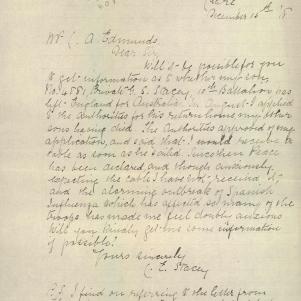 Clare
December 16th '18
Mr C. A. Edmunds
Dear Sir
Will it be possible for you
to get information as to whether my son
No 4581 Private G. S. Stacey, 10th Battalion has
left England for Australia. In August I applied
to the Authorities for his return home, my other
sons having died. The Authorities approved of my
application, and said that I would receive a
cable as soon as he sailed. Since then Peace
has been declared and though anxiously
expecting the cable I have not received it
and the alarming outbreak of Spanish
Influenza which has affected so many of the
troops has made me feel doubly anxious
Will you kindly get me some information
if possible?
Yours sincerely
C. E. Stacey
P.S. I find on referring to the letter from